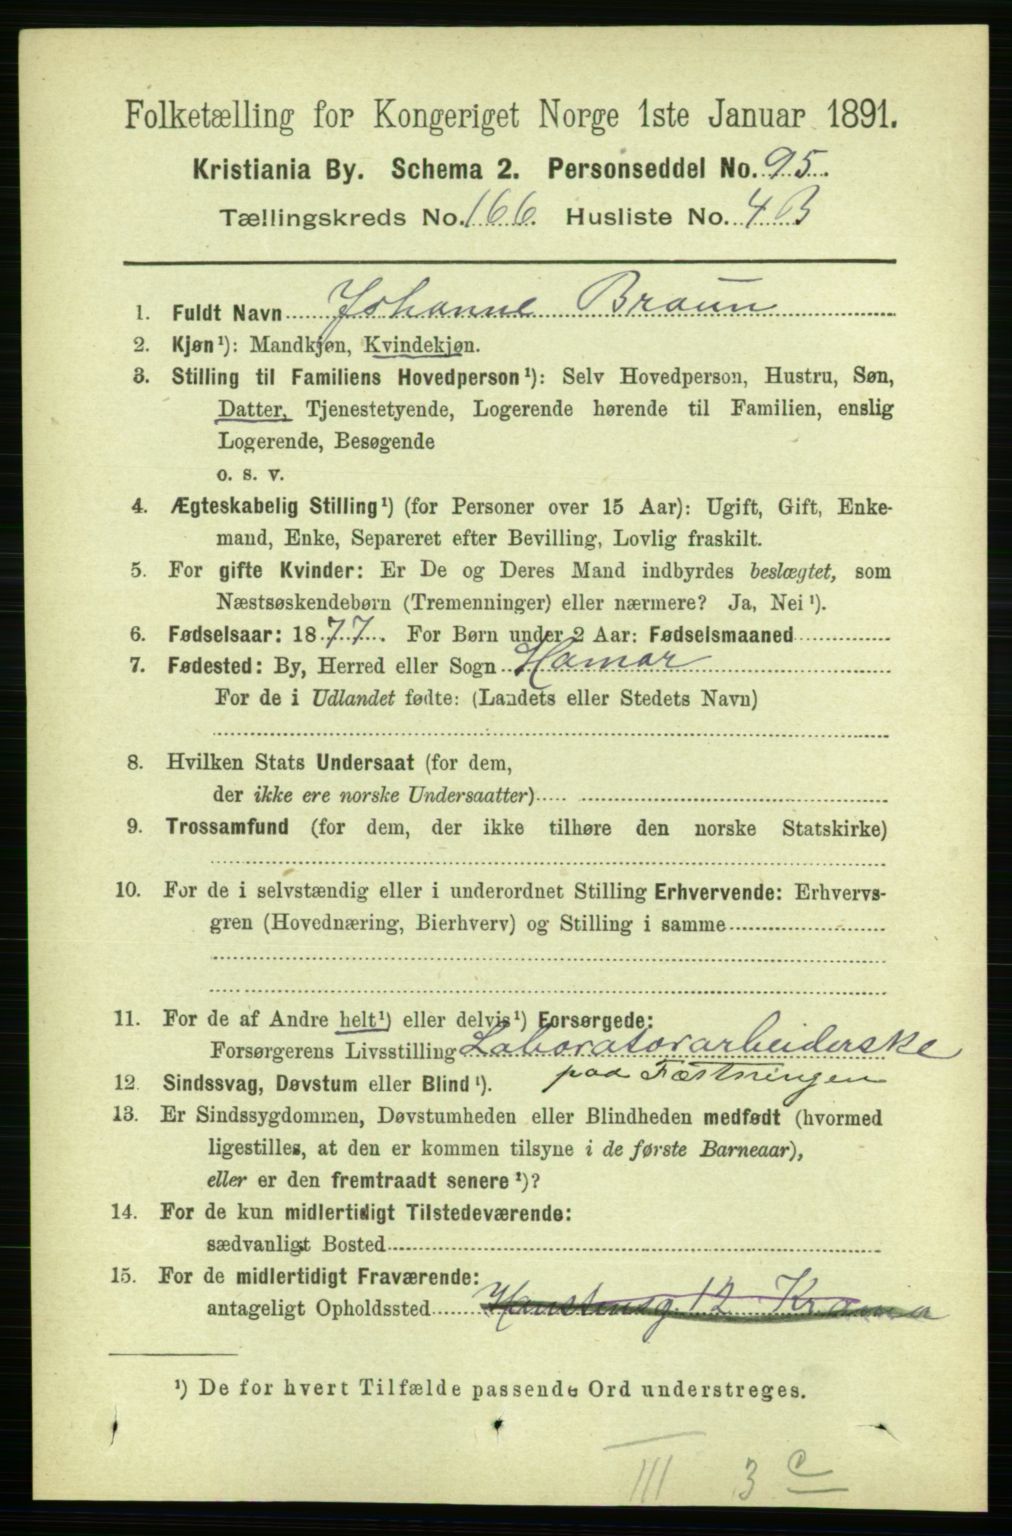 Folketælling for Kongeriget Norge 1ste Januar 1891.
Kristiania By. Schema 2. Personseddel No. 95.
Tællingskreds No. 166. Husliste No. 4B
1. Fuldt Navn Johanne Braun
2. Kjøn¹): Mandkjøn, Kvindekjøn.
3. Stilling til Familiens Hovedperson¹): Selv Hovedperson, Hustru, Søn,
Datter, Tjenestetyende, Logerende hørende til Familien, enslig
Logerende, Besøgende
o. s. v.
4. Ægteskabelig Stilling¹) (for Personer over 15 Aar): Ugift, Gift, Enke-
mand, Enke, Separeret efter Bevilling, Lovlig fraskilt.
5. For gifte Kvinder: Er De og Deres Mand indbyrdes beslægtet, som
Næstsøskendebørn (Tremenninger) eller nærmere? Ja, Nei¹).
6. Fødselsaar: 1877. For Børn under 2 Aar: Fødselsmaaned
7. Fødested: By, Herred eller Sogn Hamar
For de i Udlandet fødte: (Landets eller Stedets Navn)
8. Hvilken Stats Undersaat (for dem,
der ikke ere norske Undersaatter)
9. Trossamfund (for dem, der ikke tilhøre den norske Statskirke)
10. For de i selvstændig eller i underordnet Stilling Erhvervende: Erhvervs-
gren (Hovednæring, Bierhverv) og Stilling i samme
11. For de af Andre helt¹) eller delvis¹) Forsørgede:
Forsørgerens Livsstilling Laboratorarbeiderske
paa Fæstningen
12. Sindssvag, Døvstum eller Blind¹).
13. Er Sindssygdommen, Døvstumheden eller Blindheden medfødt (hvormed
ligestilles, at den er kommen tilsyne i de første Barneaar),
eller er den fremtraadt senere¹)?
14. For de kun midlertidigt Tilstedeværende:
sædvanligt Bosted
15. For de midlertidigt Fraværende:
antageligt Opholdssted 12 Krania
¹) De for hvert Tilfælde passende Ord understreges.
III 3 c